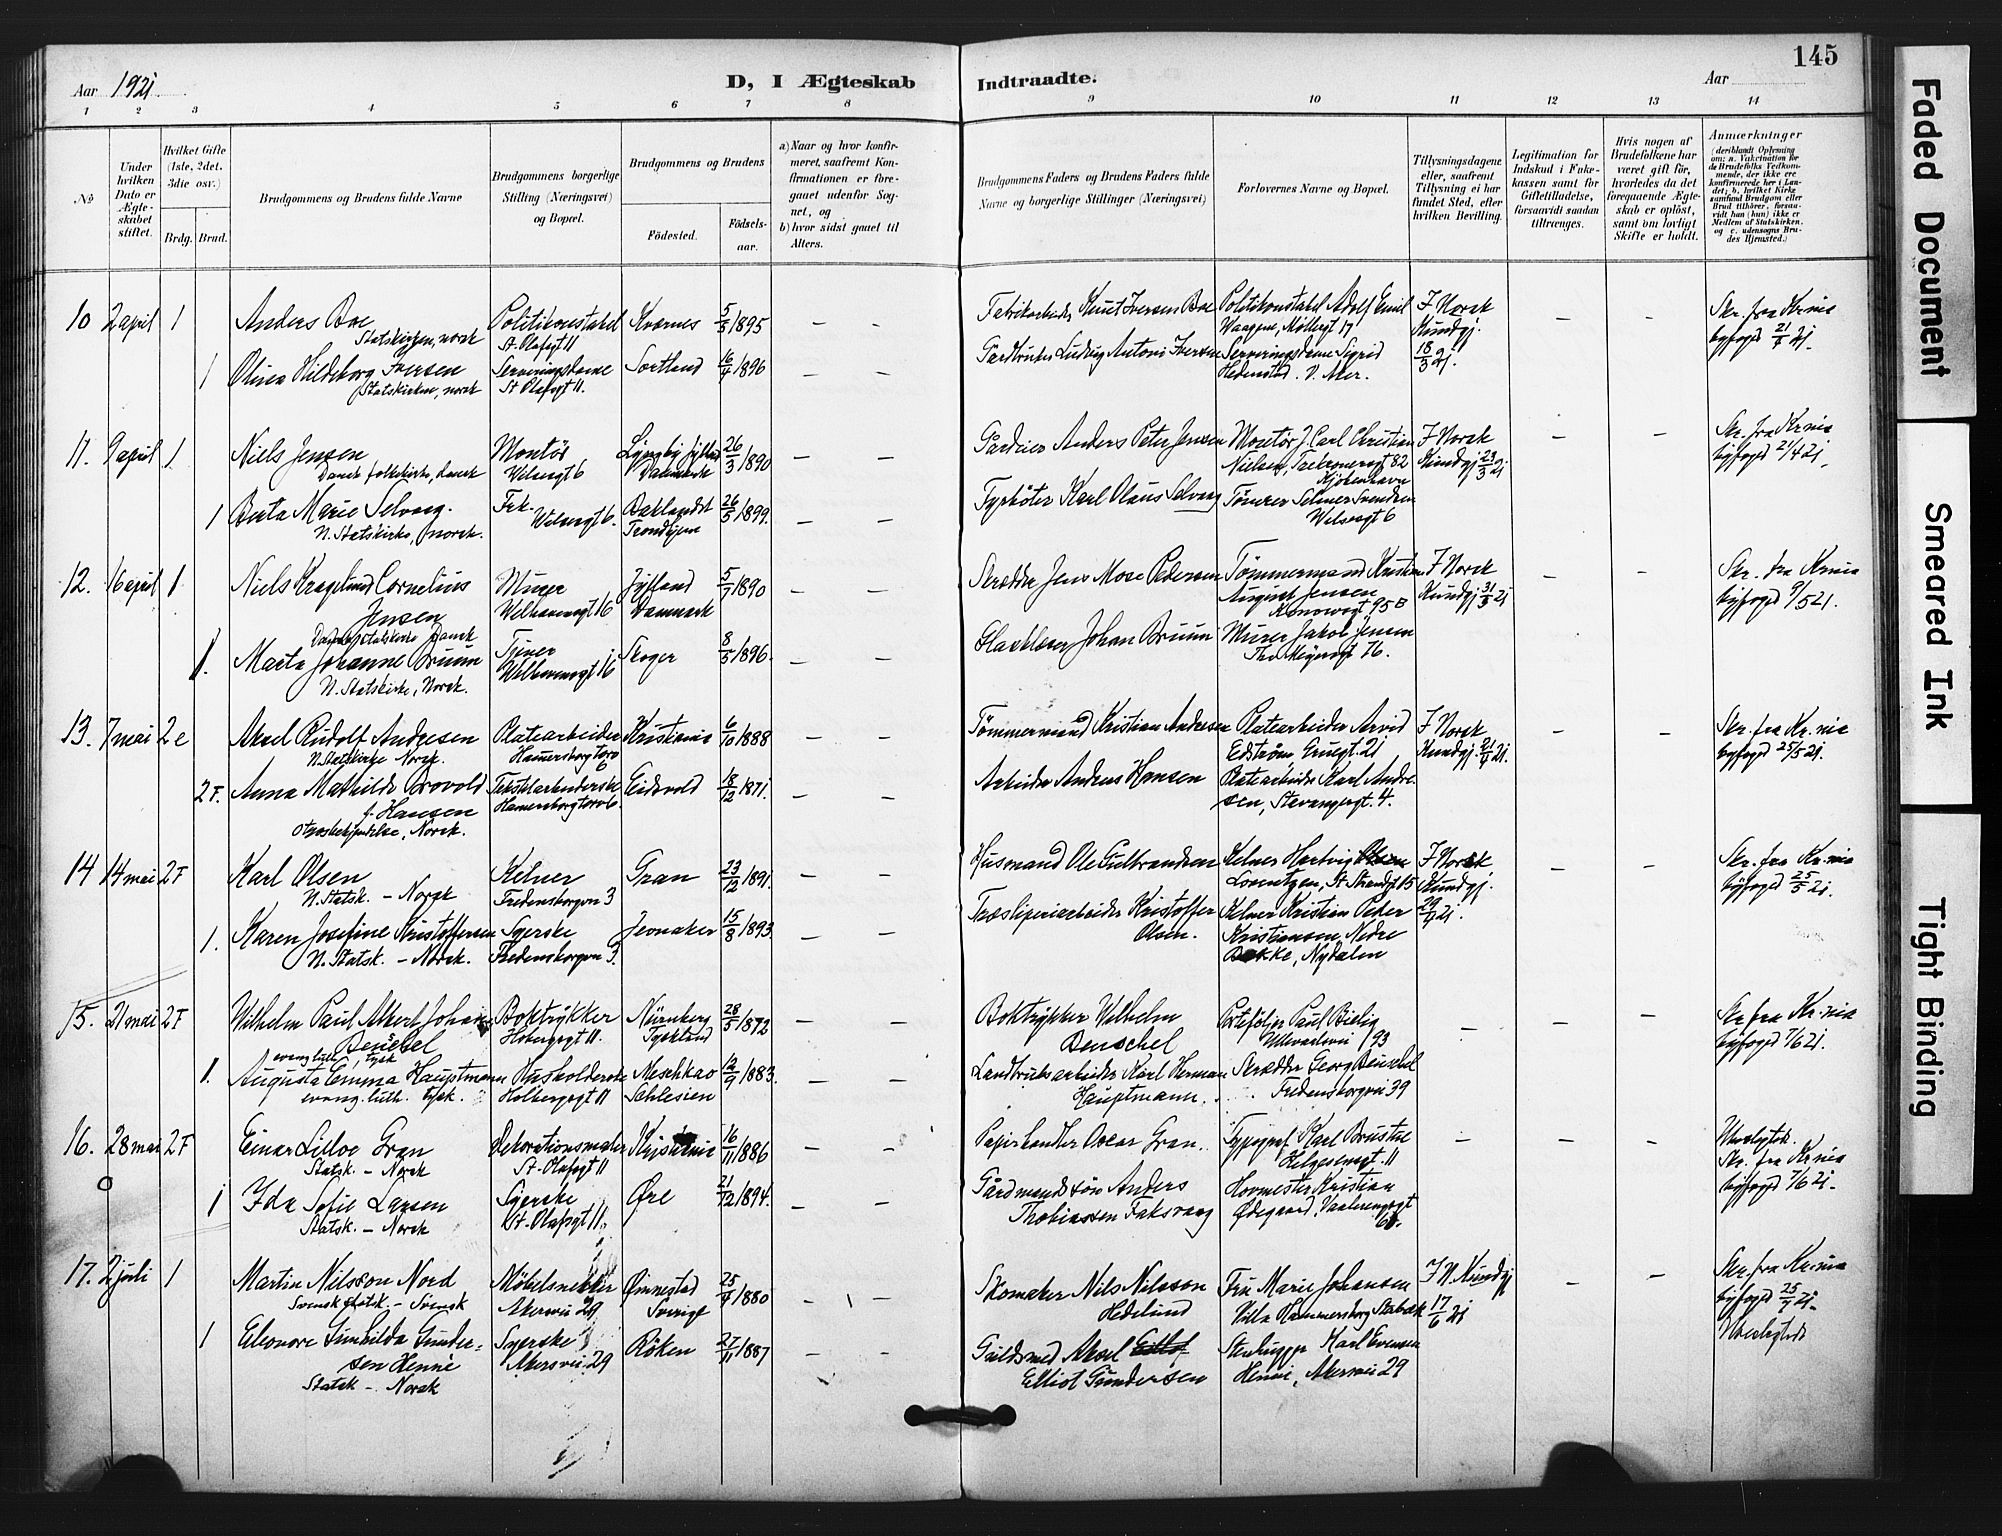 145
Aar 1921.
D, I Ægteskab
Indtraadte.
Aar
1 2 3 4 5 6 7 8 9 10 11 12 13 14
No
Under hvilken Dato er Ægteskabet stiftet.
Hvilket Gifte (1ste, 2det, 3die osv.)
Brdg. Brud.
Brudgommens og Brudens fulde Navne
Brudgommens borgerlige Stilling (Næringsvei) og Bopæl.
Brudgommens og Brudens
Fødested.
Fødselsaar.
a) Naar og hvor konfirmeret, saafremt Konfirmationen er foregaaet udenfor Sognet, og
b) hvor sidst gaaet til Alters.
Brudgommens Faders og Brudens Faders fulde Navne og borgerlige Stillinger (Næringsvei)
Forlovernes Navne og Bopæl.
Tillysningsdagene eller, saafremt Tillysning ei har fundet Sted, efter hvilken Bevilling.
Legitimation for Indskud i Enkekassen samt for Giftetilladelse, forsaavidt saadan tiltrænges.
Hvis nogen af Brudefolkene har været gift før, hvorledes da det foregaaende Ægteskab er opløst, samt om lovligt Skifte er holdt.
Anmærkninger
10 2 april 1 Anders Boe Politikonstabel Kvernes 5/3 1895 — — Fabrikarbeid. Knut Iversen Boe Politikonstabel Adolf Emil I Norsk — — Skr. fra Kr.nia
Statskirken, norsk St. Olafsgt 11 Waagene, Møllergt 17 Kundgj. byfoged 21/4 21.
1 Olivia Hildeborg Iversen Serveringsdame Sortland 16/4 1896 — — Gardbruker Ludvig Antoni Iversen Serveringsdame Sigrid 18/3 21.
Statskirken, norsk St Olafsgt 11. Hedenstad. V. Aker.
11. 9 april 1 Niels Jensen Montør Lyngby Jylland 26/3 1890 — — Gårdeier Anders Peter Jensen Montør J. Carl Christian I Norsk — — Skr. fra Kr.nia
Dansk folkekirke, dansk Welsergt 6 Danmark Nielsen, Trekronergt 82 Kundgj 23/3 21 byfoged 21/4 21.
Kjøbenhavn
1 Berta Marie Selvaag. Frk. Baklandet 26/5 1899. — — Fyrbøter Karl Olaus Selvaag Tømrer Selmer Svendsen
N. Statskirke, norsk. Welsergt 6. Trondhjem Welsergt 6
12. 16 april 1 Niels Kragelund Cornelius Murer Jylland 5/7 1890 — — Skrædder Jens Mose Pedersen Tømmermand Kristian I Norsk — — Skr. fra Kr.nia
Jensen Danmark August Jensen Kundgj 31/3 21 byfoged 9/5 21.
Konowsgt 95 B
1. Marta Johanne Bruun Tjener Skoger 8/5 1896. — — Johan Bruun Murer Jakob Jensen
N. Statskirke, Norsk. Tho Meyersgt 76.
13. 7 mai 2 e Aksel Rudolf Andresen Platearbeider Kristiania 6/10 1888 — — Tømmermand Kristian Andresen Platearbeider Arvid I Norsk — — Skr. fra Kr.nia
N. Statskirke Norsk. Hamersborgtorv 6 Edstrøm Gruegt. 21 Kundgj. 21/4 21. byfoged 25/5 21.
2 F. Anna Mathilde Brovold Tekstilarbeiderske Eidsvold 18/12 1871. — — Arbeider Anders Hansen Platearbeider Karl Andre-
f. Hansen Hamersborgtorv 6. sen, Stavangergt. 4.
Trosbekjendelse, Norsk.
14 14 mai 2 F Karl Olsen Kelner Gran 23/12 1891. — — Husmand Ole Gulbrandsen Kelner Hartvig I Norsk — — Skr. fra Kr.nia
N. Statsk. – Norsk Fredensborgvn 3 Lorentzen, St Strandgt 15 Kundgj. byfoged 25/5 21.
1. Karen Josefine Kristoffersen Syerske Jevnaker 15/8 1893. — — Træsliperiarbeider Kristoffer Kelner Kristian Peder 29/4 21.
N. Statsk. – Norsk. Fredensborgvn 3. Olsen. Kristiansen, Nedre
Bakke, Nydalen
15. 21 mai 2 F Wilhelm Paul Albert Johan Boktrykker Nürnberg 28/5 1872 — — Boktrykker Wilhelm Portefølje Paul Bielig — — — Skr. fra Kr.nia
Benschel Holbergsgt 11. Tyskland Benschel Ullevaalsvei 93 byfoged 7/6 21.
evang luth, tysk
1. Augusta Emma Hauptmann Husholderske Meschkao 12/9 1883. — — Landbruksarbeider Karl Herman Skrædder Georg Benschel
evang. luth. tysk. Holbergsgt 11 Schlesien Hauptmann. Fredensborgvei 39
16. 28 mai 2 F Einar Lilloe Gran Dekorationsmaler Kristiania 16/11 1886 — — Papirhandler Oscar Gran. Typograf Karl Brustue — — — Uvaslgtsk.
Statsk. – Norsk St. Olafsgt 11 Helgesensgt. 11 Skr. fra Kr.nia
1 Ida Sofie Larsen Syerske Øre 21/12 1894. — — Gårdmandssøn Anders Hovmester Kristian byfoged 7/6 21.
Statsk. – Norsk St. Olafsgt 11. Thobiassen Faksvaag Ødegaard, Vaalerengagt
17. 2 juli 1 Martin Nilsson Nord Møbelsnekker Ønnestad 25/4 1880 — — Skomaker Nils Nilsson Fru Marie Johansen I N. Kundgj — — Skr. fra Kr.nia
Svensk statsk. – Svensk Akersvei 29 Sverige Hedelund Villa Hammersborg Stabæk 17/6 21 byfoged 25/7 21.
1 Eleonore Gunhilda Gunder- Syerske Røken 27/11 1887 — — Guldsmed Aksel Stenhugger Karl Evensen
sen Hennie Akersvei 29 Elliot Gundersen Hennie, Akersvei 29
Statsk – Norsk
Faded Document
Smeared Ink
Tight Binding